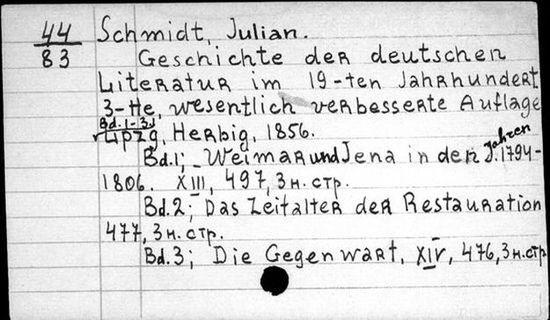 44 Schmidt, Julian.
83 Geschichte der deutschen
Literatur im 19-ten Jahrhundert
3-te, wesentlich verbesserte Auflage
Bd. 1-3.
Lpzg, Herbig, 1856.
Bd.1; Weimar und Jena in den Jahren J. 1794-
1806. XIII, 497, 3 н. стр.
Bd.2; Das Zeitalter der Restauration
477, 3 н. стр.
Bd.3; Die Gegenwart, XIV, 476, 3 н. стр